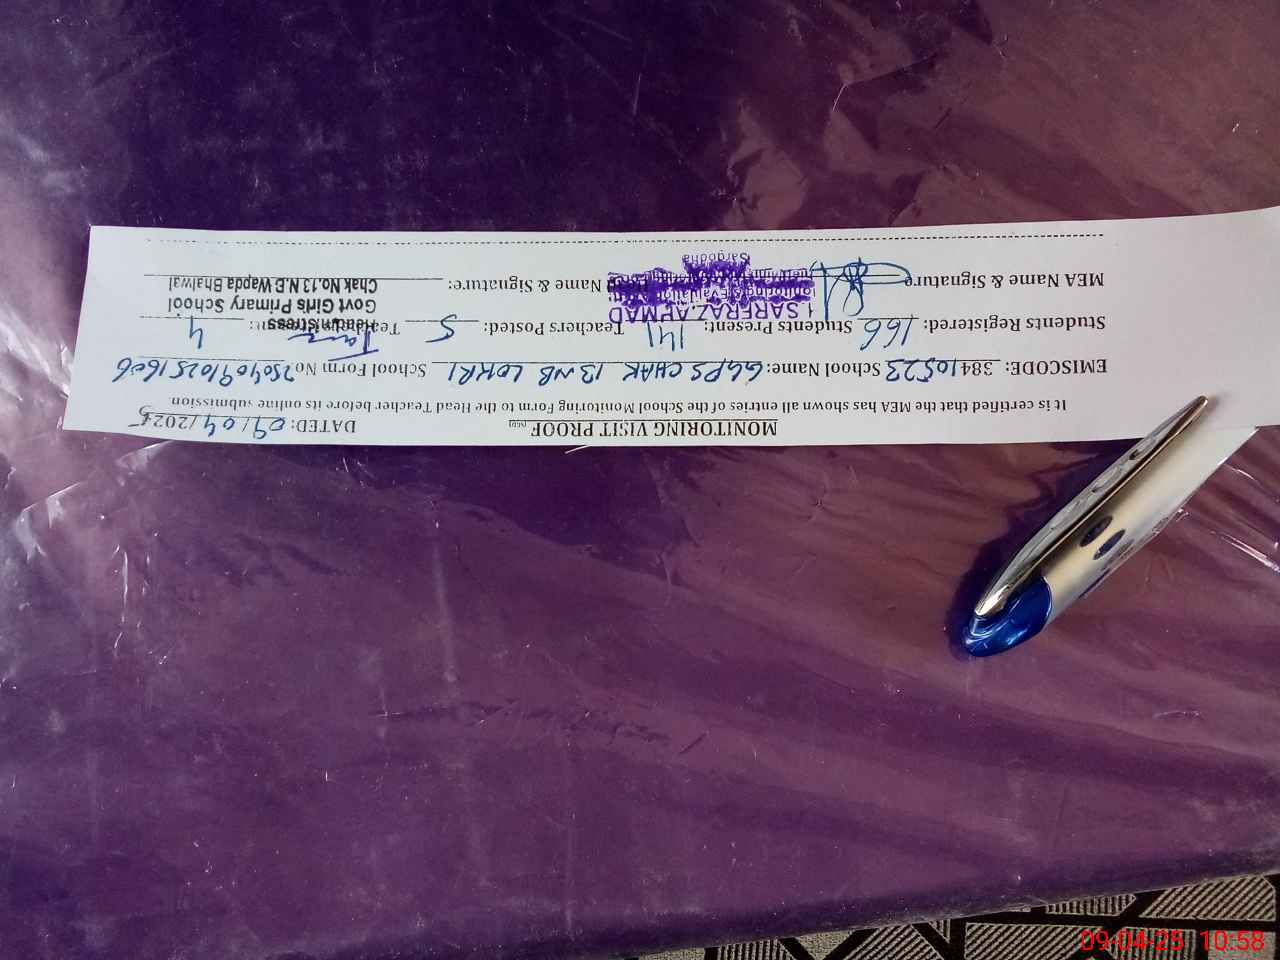 MONITORING VISIT PROOF DATED: 09/04/2025
It is certified that the MEA has shown all entries of the School Monitoring Form to the Head Teacher before its online submission.
EMISCODE: 38410523 School Name: GGPS CHAK 13 NB LOKRI School Form No 25040910251606
Students Registered: 166 Students Present: 141 Teachers Posted: 5 Teachers Present: 4
MEA Name & Signature Head Name & Signature:
SARFRAZ AHMAD
Sargodha
Headmistress
Govt Girls Primary School
Chak No.13 N.B Wapda Bhalwal
09-04-25 10:58